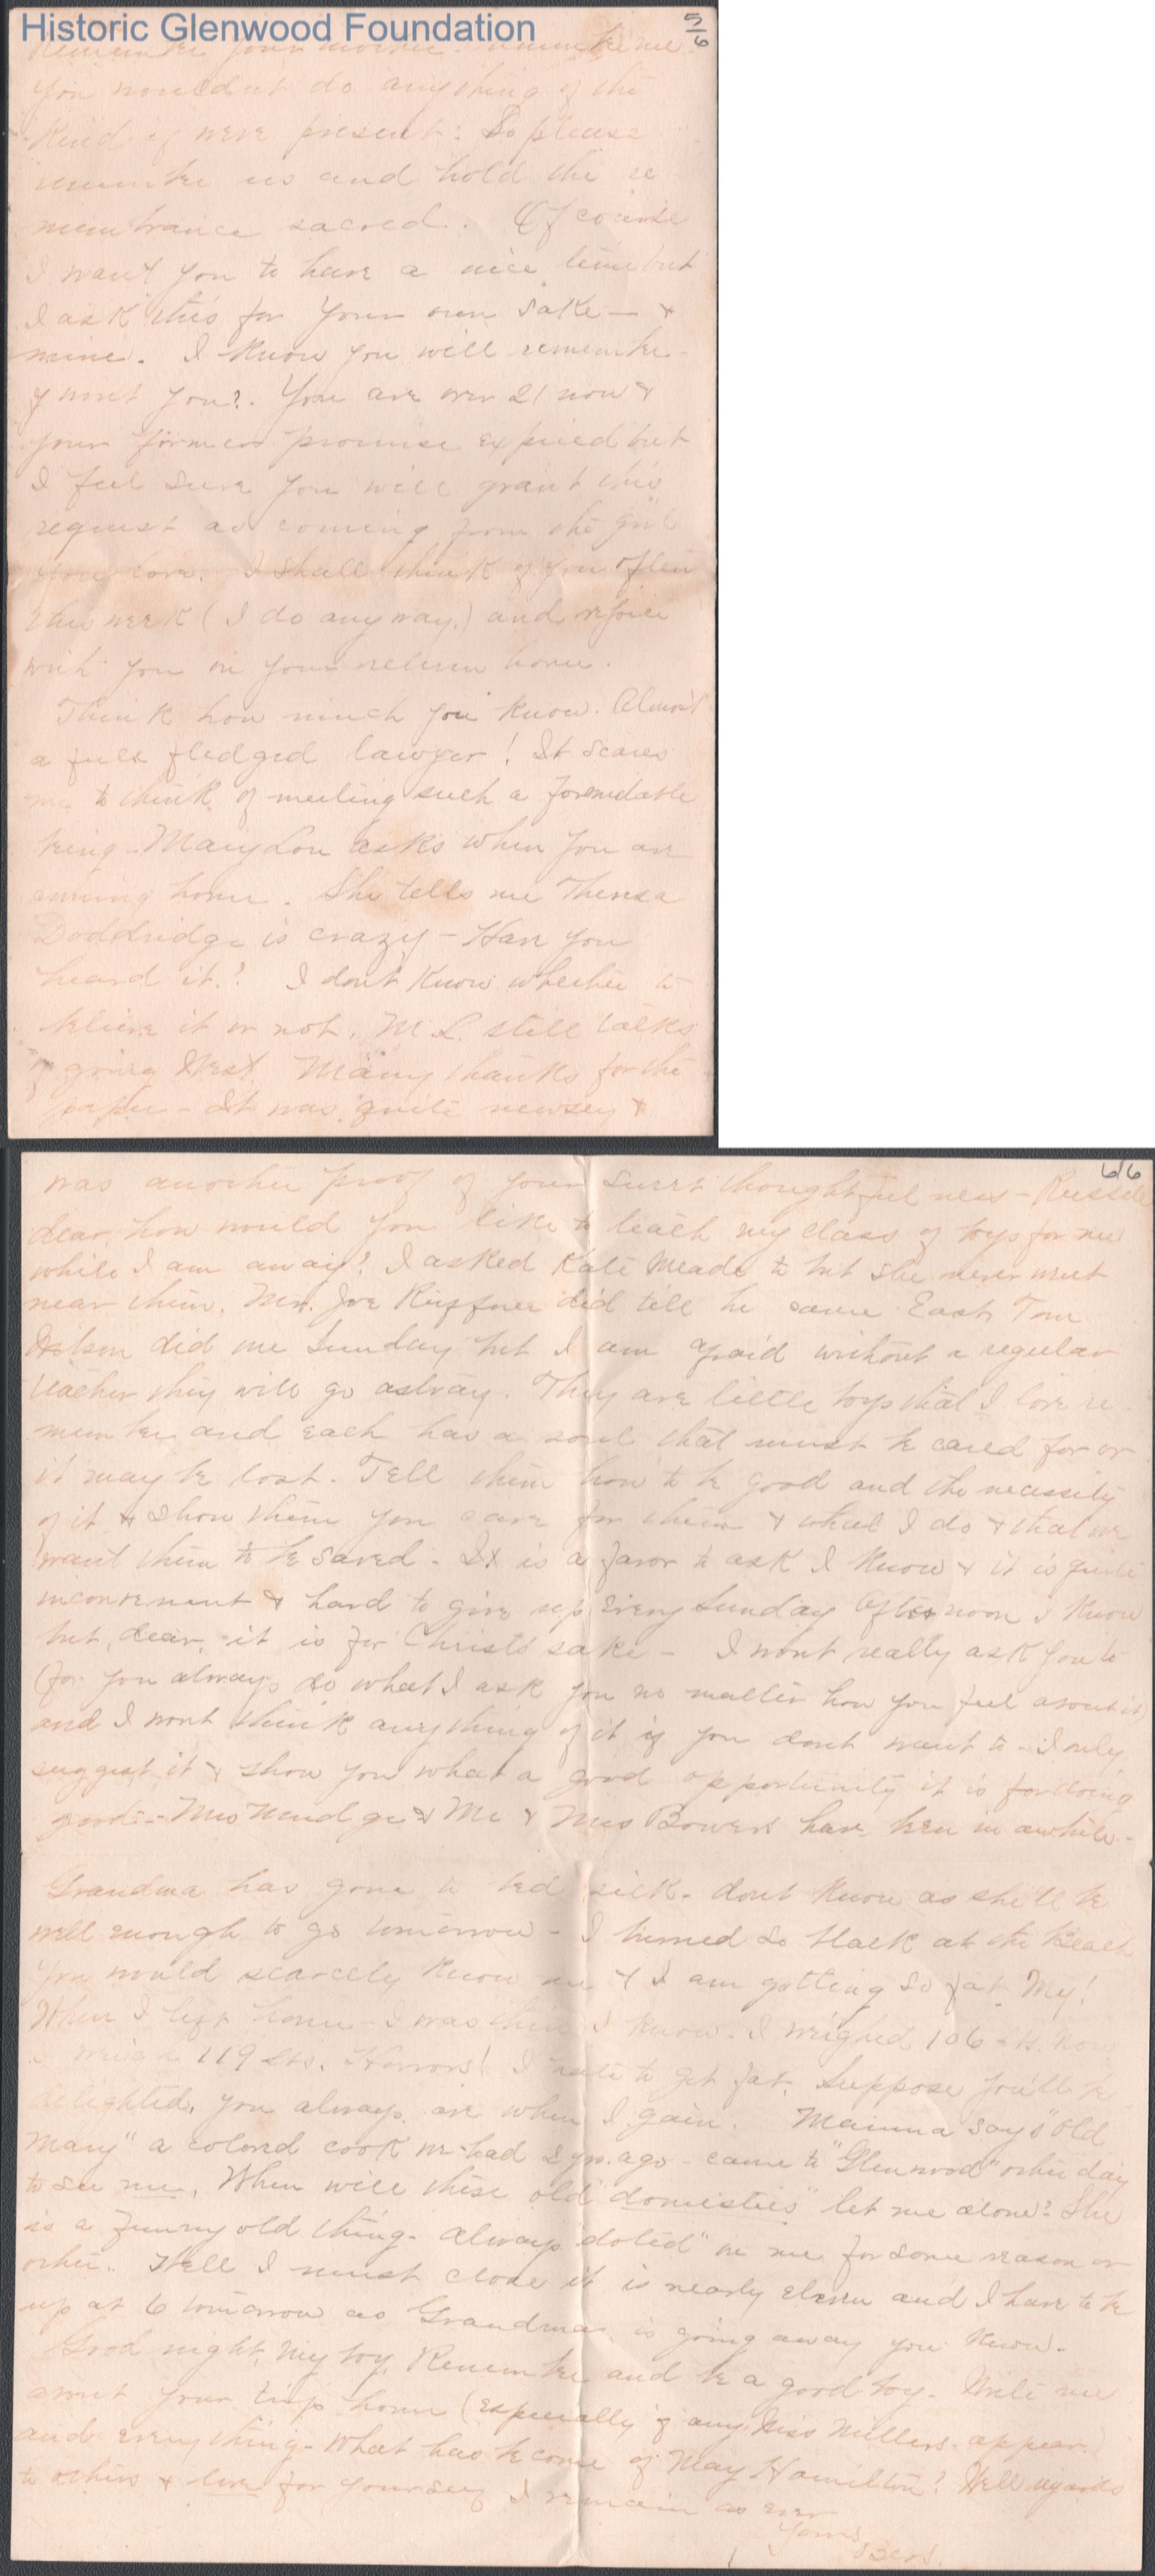 Historic Glenwood Foundation
5/6
Remember your mother. Remember me.
You wouldn't do anything of the
kind if were present: So please
remember us and hold the re
membrance sacred. Of course
I want you to have a nice time but
I ask this for your own sake — &
mine. I know you will remember
wont you?. You are over 21 now &
your former promise expired but
I feel sure you will grant this
request as coming from the girl
you love. I shall think of you often
this week (I do anyway.) and rejoice
with you in your return home.
Think how much you know. Almost
a full fledged lawyer! It scares
me to think of meeting such a formidable
being - Mary Lou asks when you are
coming home. She tells me Theresa
Doddridge is crazy - Have you
heard it? I dont know whether to
believe it or not. M L. still talks
of going West. Many thanks for the
paper - It was quite newsey &
6/6
was another proof of your sweet thoughtfulness - Russell
dear, how would you like to teach my class of boys for me
while I am away? I asked Kate Meade to but she never went
near them. Mr. Joe Ruffner did till he came East. Tom
did one Sunday but I am afraid without a regular
teacher they will go astray. They are little boys that I love re
member and each has a soul that must be cared for or
it may be lost. Tell them how to be good and the necessity
of it & show them you care for them & that I do & that we
want them to be saved - It is a favor to ask I know & it is quite
inconvenient & hard to give up every Sunday Afternoon I know
but, dear, it is for Christ's sake - I wont really ask you to
(for you always do what I ask you no matter how you feel about it)
and I wont think anything of it if you dont want to - I only
suggest it & show you what a good opportunity it is for doing
good - Mr & Mrs Bowers have been in awhile -
Grandma has gone to bed sick - dont know as she'll be
well enough to go tomorrow - I burned so black at the Beach
you would scarcely know me & I am getting so fat. My!
When I left home - I was thin I know. I weighed 106 lbs. now
I weigh 119 lbs. Horrors! I hate to get fat. Suppose you'll be
delighted, you always are when I gain. Mamma says "old
Mary" a colored cook we had 2 yrs. ago - came to "Glenwood" other day
to see me. When will these old "domestics" let me alone? She
is a funny old thing - always "doted" on me for some reason or
other. Well I must close it is nearly eleven and I have to be
up at 6 tomorrow as Grandma is going away you know.
Good night, my boy. Remember and be a good boy. Write me
about your trip home (especially if any Miss Millers appear.)
and everything - What has become of May Hamilton? Well regards
to others & love for yourself I remain as ever
Yours